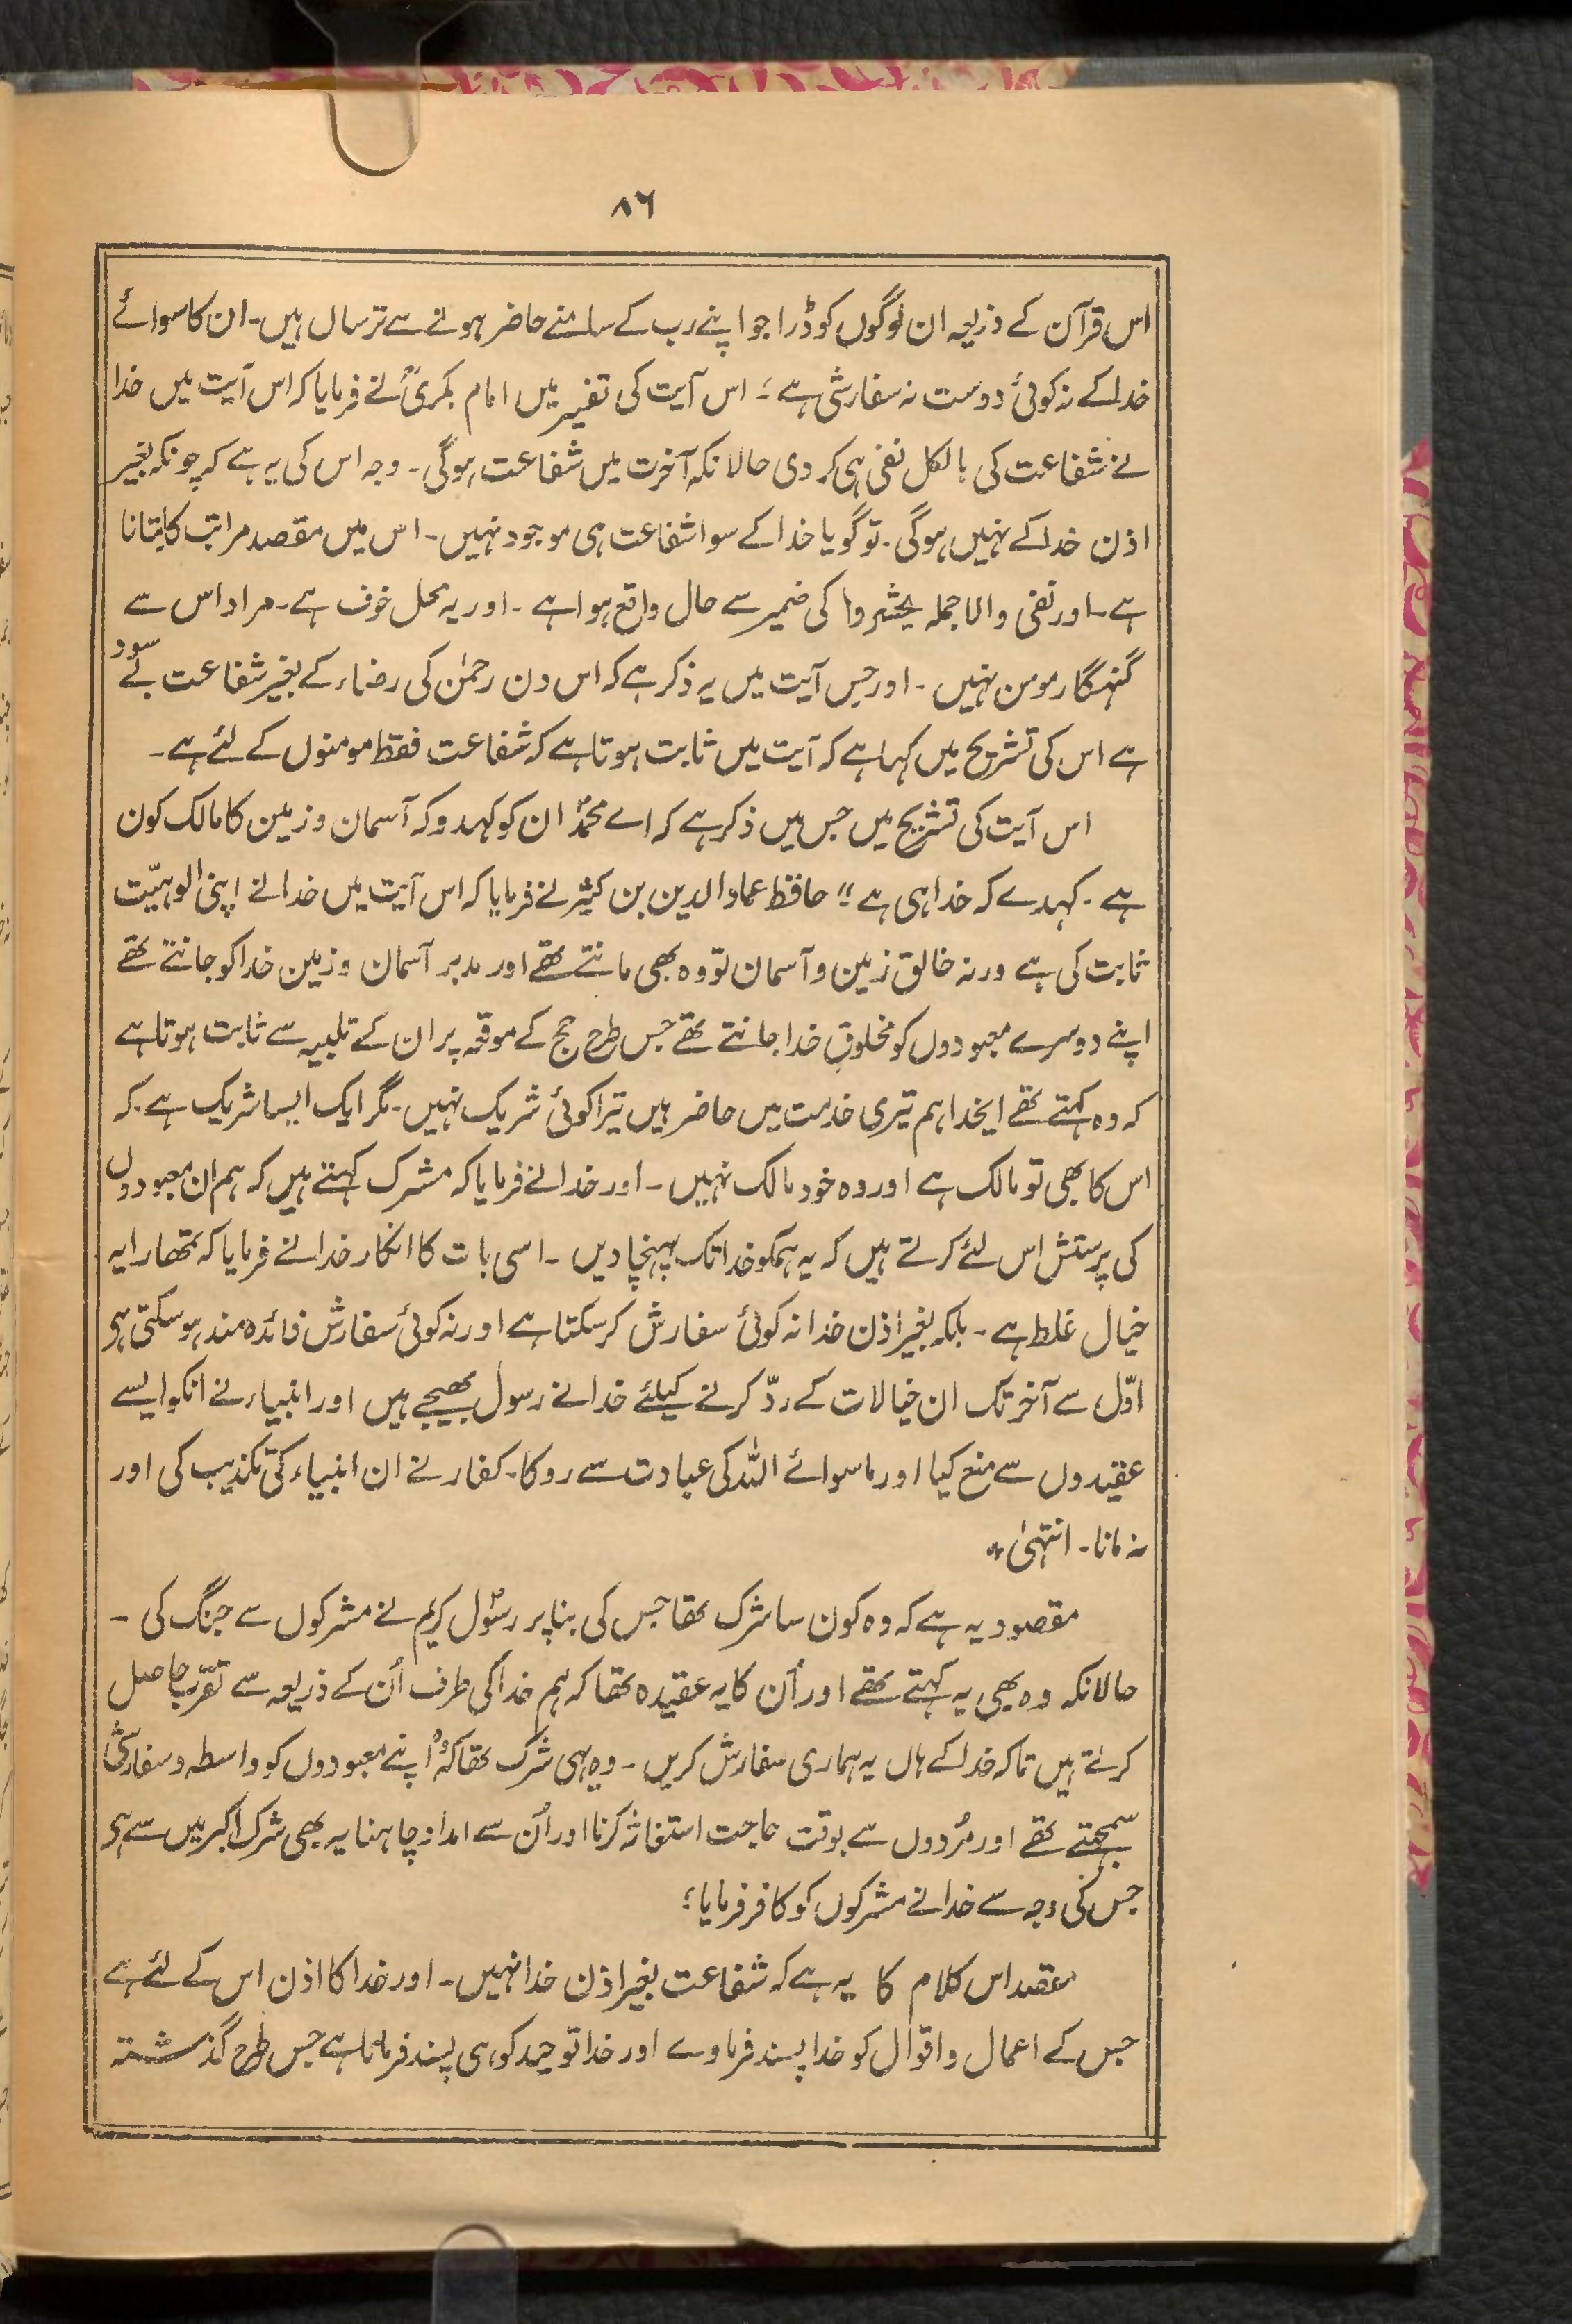 ۸۶
اس قرآن کے ذریعہ ان لوگوں کو ڈرا جو اپنے رب کے سامنے حاضر ہونے سے ترسال ہیں۔ ان کا سوائے
خدا کے نہ کوئی دوست نہ سفارشی ہے؛ اس آیت کی تفسیر میں امام بکریؒ نے فرمایا کہ اس آیت میں خدا
نے شفاعت کی بالکل نفی ہی کر دی حالانکہ آخرت میں شفاعت ہوگی۔ وجہ اس کی یہ ہے کہ چونکہ بغیر
اذن خدا کے نہیں ہوگی۔ تو گویا خدا کے سوا شفاعت ہی موجود نہیں۔ اس میں مقصد مراتب کا بتانا
ہے۔ اور نفی والا جملہ یحشروا کی ضمیر سے حال واقع ہوا ہے۔ اور یہ محل خوف ہے۔ مراد اس سے
گنہگار مومن نہیں۔ اور جس آیت میں یہ ذکر ہے کہ اس دن رحمٰن کی رضاء کے بغیر شفاعت بے سود
ہے اس کی تشریح میں کہا ہے کہ آیت میں ثابت ہوتا ہے کہ شفاعت فقط مومنوں کے لئے ہے۔
اس آیت کی تشریح میں جس میں ذکر ہے کہ اے محمدؐ ان کو کہدو کہ آسمان و زمین کا مالک کون
ہے۔ کہدے کہ خدا ہی ہے" حافظ عماد الدین بن کثیر نے فرمایا کہ اس آیت میں خدا نے اپنی الوہیّت
ثابت کی ہے ورنہ خالق زمین و آسمان تو وہ بھی مانتے تھے اور مدبر آسمان و زمین خدا کو جانتے تھے
اپنے دوسرے معبودوں کو مخلوقِ خدا جانتے تھے جس طرح حج کے موقعہ پر ان کے تلبیہ سے ثابت ہوتا ہے
کہ وہ کہتے تھے ایخدا ہم تیری خدمت میں حاضر ہیں تیرا کوئی شریک نہیں۔ مگر ایک ایسا شریک ہے۔ کہ
اس کا بھی تو مالک ہے اور وہ خود مالک نہیں۔ اور خدا نے فرمایا کہ مشرک کہتے ہیں کہ ہم ان معبودوں
کی پرستش اس لئے کرتے ہیں کہ یہ ہمکو خدا تک پہنچا دیں۔ اسی بات کا انکار خدا نے فرمایا کہ تمھارا یہ
خیال غلط ہے۔ بلکہ بغیر اذن خدا نہ کوئی سفارش کر سکتا ہے اور نہ کوئی سفارش فائدہ مند ہو سکتی ہی
اوّل سے آخر تک ان خیالات کے ردّ کرنے کیلئے خدا نے رسول بھیجے ہیں اور انبیاء نے انکو ایسے
عقیدوں سے منع کیا اور ماسوائے اللہ کی عبادت سے روکا۔ کفار نے ان انبیاء کی تکذیب کی اور
نہ مانا۔ انتہیٰ *
مقصود یہ ہے کہ وہ کون سا شرک تھا جس کی بنا پر رسُول کریمؐ نے مشرکوں سے جنگ کی۔
حالانکہ وہ بھی یہ کہتے تھے اور اُن کا یہ عقیدہ تھا کہ ہم خدا کی طرف اُن کے ذریعہ سے تقرّب حاصل
کرتے ہیں تاکہ خدا کے ہاں یہ ہماری سفارش کریں۔ وہی شرک تھا کہ وُہ اپنے معبودوں کو واسطہ و سفارشی
سمجھتے تھے اور مُردوں سے بوقت حاجت استغاثہ کرنا اور اُن سے امداد چاہنا یہ بھی شرک اکبر میں سے ہی
جس کی وجہ سے خدا نے مشرکوں کو کافر فرمایا؛
مقصد اس کلام کا یہ ہے کہ شفاعت بغیر اذن خدا نہیں۔ اور خدا کا اذن اس کے لئے ہے
جس کے اعمال و اقوال کو خدا پسند فرماوے اور خدا توحید کو ہی پسند فرماتا ہے جس طرح گذشتہ